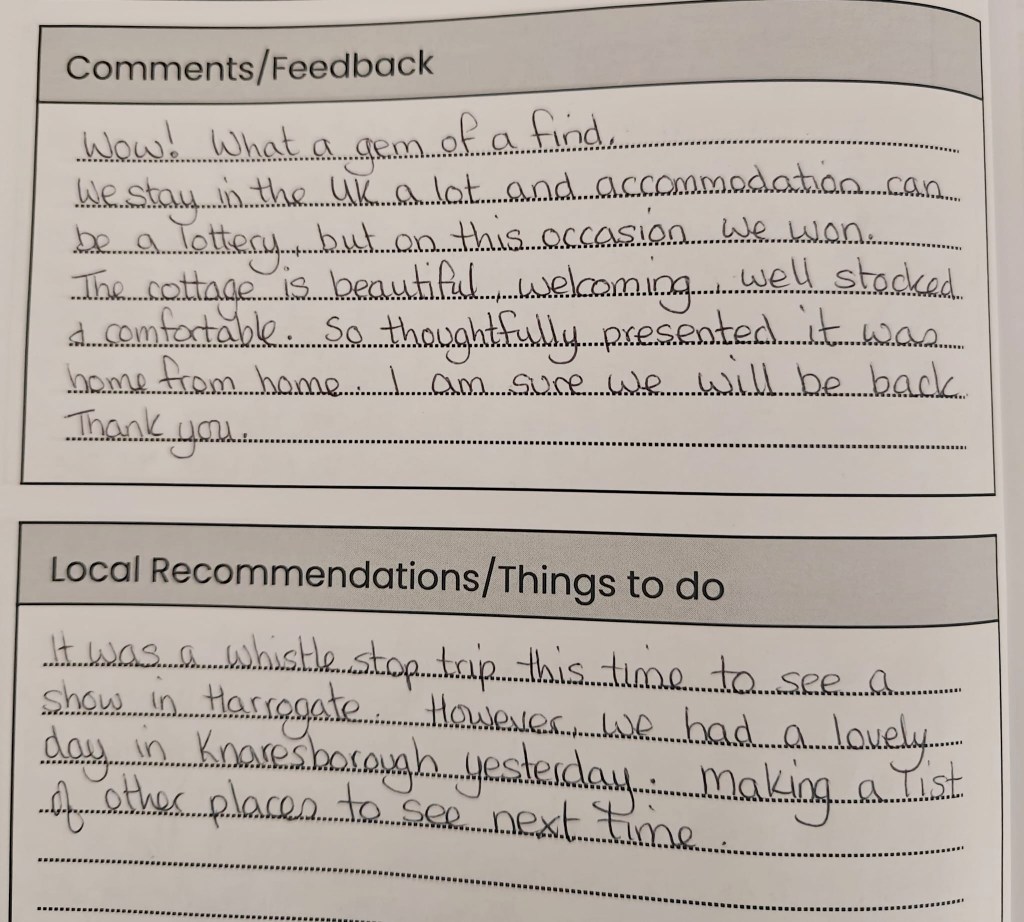 Comments/Feedback
Wow! What a gem of a find.
We stay in the UK a lot and accommodation can
be a lottery, but on this occasion we won.
The cottage is beautiful, welcoming, well stocked
& comfortable. So thoughtfully presented it was
home from home. I am sure we will be back
Thank you.
Local Recommendations/Things to do
It was a whistle stop trip this time to see a
show in Harrogate. However, we had a lovely
day in Knaresborough yesterday. Making a list
of other places to see next time.